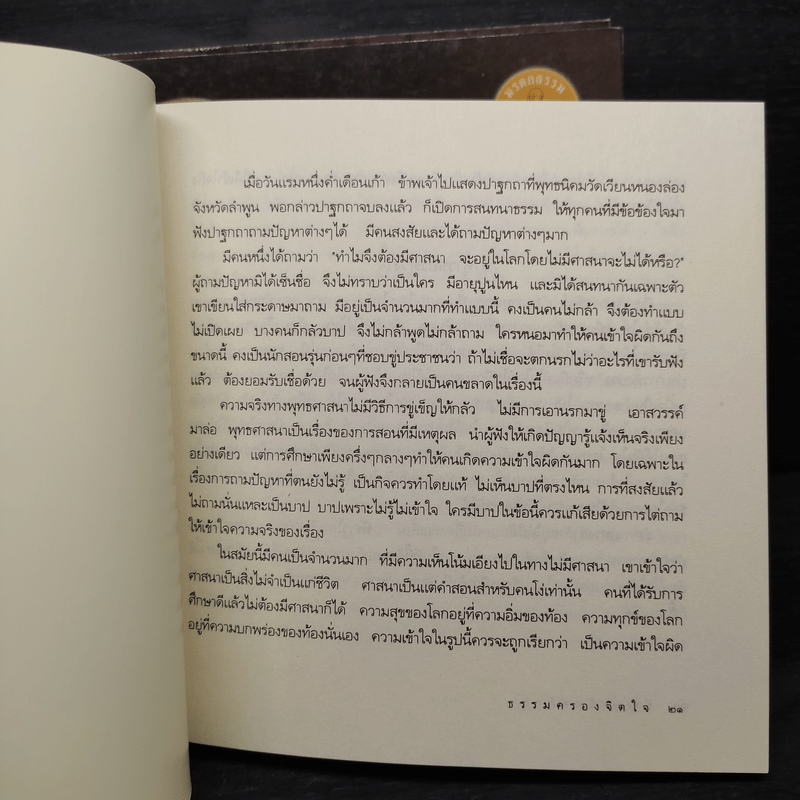 มรดกธรรม
เมื่อวันแรมหนึ่งค่ำเดือนเก้า ข้าพเจ้าไปแสดงปาฐกถาที่พุทธนิคมวัดเวียนหนองล่อง
จังหวัดลำพูน พอกล่าวปาฐกถาจบลงแล้ว ก็เปิดการสนทนาธรรม ให้ทุกคนที่มีข้อข้องใจมา
ฟังปาฐกถาถามปัญหาต่างๆได้ มีคนสงสัยและได้ถามปัญหาต่างๆมาก
มีคนหนึ่งได้ถามว่า "ทำไมจึงต้องมีศาสนา จะอยู่ในโลกโดยไม่มีศาสนาจะไม่ได้หรือ?"
ผู้ถามปัญหามิได้เซ็นชื่อ จึงไม่ทราบว่าเป็นใคร มีอายุปูนไหน และมิได้สนทนากันเฉพาะตัว
เขาเขียนใส่กระดาษมาถาม มีอยู่เป็นจำนวนมากที่ทำแบบนี้ คงเป็นคนไม่กล้า จึงต้องทำแบบ
ไม่เปิดเผย บางคนก็กลัวบาป จึงไม่กล้าพูดไม่กล้าถาม ใครหนอมาทำให้คนเข้าใจผิดกันถึง
ขนาดนี้ คงเป็นนักสอนรุ่นก่อนๆที่ชอบขู่ประชาชนว่า ถ้าไม่เชื่อจะตกนรกไม่ว่าอะไรที่เขารับฟัง
แล้ว ต้องยอมรับเชื่อด้วย จนผู้ฟังจึงกลายเป็นคนขลาดในเรื่องนี้
ความจริงทางพุทธศาสนาไม่มีวิธีการขู่เข็ญให้กลัว ไม่มีการเอานรกมาขู่ เอาสวรรค์
มาล่อ พุทธศาสนาเป็นเรื่องของการสอนที่มีเหตุผล นำผู้ฟังให้เกิดปัญญารู้แจ้งเห็นจริงเพียง
อย่างเดียว แต่การศึกษาเพียงครึ่งๆกลางๆทำให้คนเกิดความเข้าใจผิดกันมาก โดยเฉพาะใน
เรื่องการถามปัญหาที่ตนยังไม่รู้ เป็นกิจควรทำโดยแท้ ไม่เห็นบาปที่ตรงไหน การที่สงสัยแล้ว
ไม่ถามนั่นแหละเป็นบาป บาปเพราะไม่รู้ไม่เข้าใจ ใครมีบาปในข้อนี้ควรแก้เสียด้วยการไต่ถาม
ให้เข้าใจความจริงของเรื่อง
ในสมัยนี้มีคนเป็นจำนวนมาก ที่มีความเห็นโน้มเอียงไปในทางไม่มีศาสนา เขาเข้าใจว่า
ศาสนาเป็นสิ่งไม่จำเป็นแก่ชีวิต ศาสนาเป็นแต่คำสอนสำหรับคนโง่เท่านั้น คนที่ได้รับการ
ศึกษาดีแล้วไม่ต้องมีศาสนาก็ได้ ความสุขของโลกอยู่ที่ความอิ่มของท้อง ความทุกข์ของโลก
อยู่ที่ความบกพร่องของท้องนั่นเอง ความเข้าใจในรูปนี้ควรจะถูกเรียกว่า เป็นความเข้าใจผิด
ธรรมครองจิตใจ ๒๑